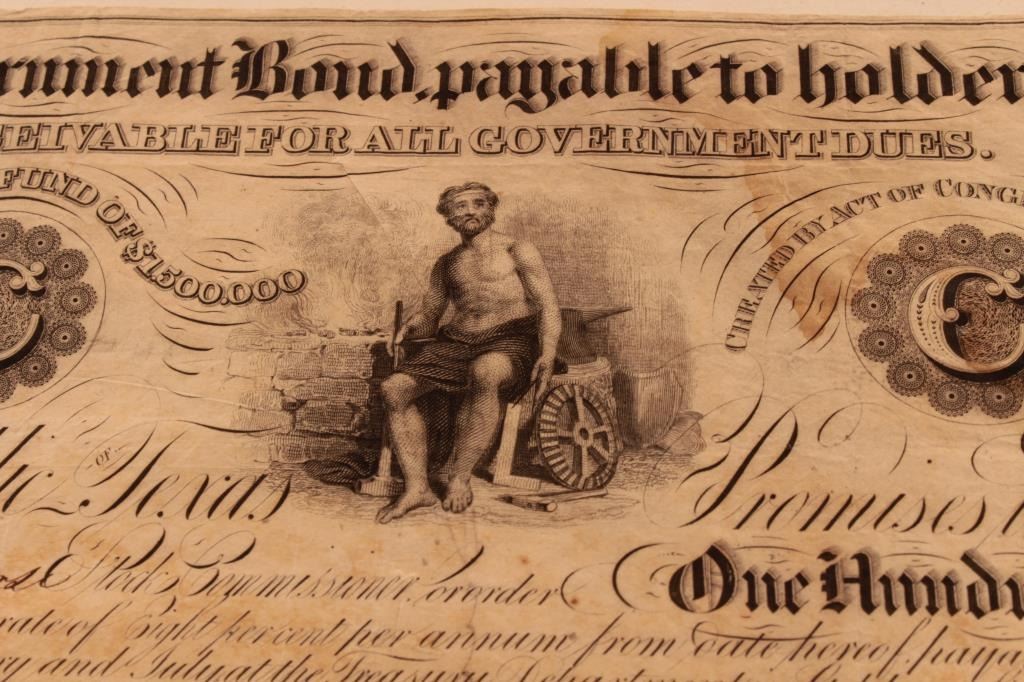 rnment Bond, payable to holder
CEIVABLE FOR ALL GOVERNMENT DUES.
FUND OF $1.500.000
CREATED BY ACT OF CONG
C
C
lic OF Texas
Promises
Stock Commissioner, or order
One Hund
rate of Eight per cent per annum from date hereof, paya
ry and July, at the Treasury Department